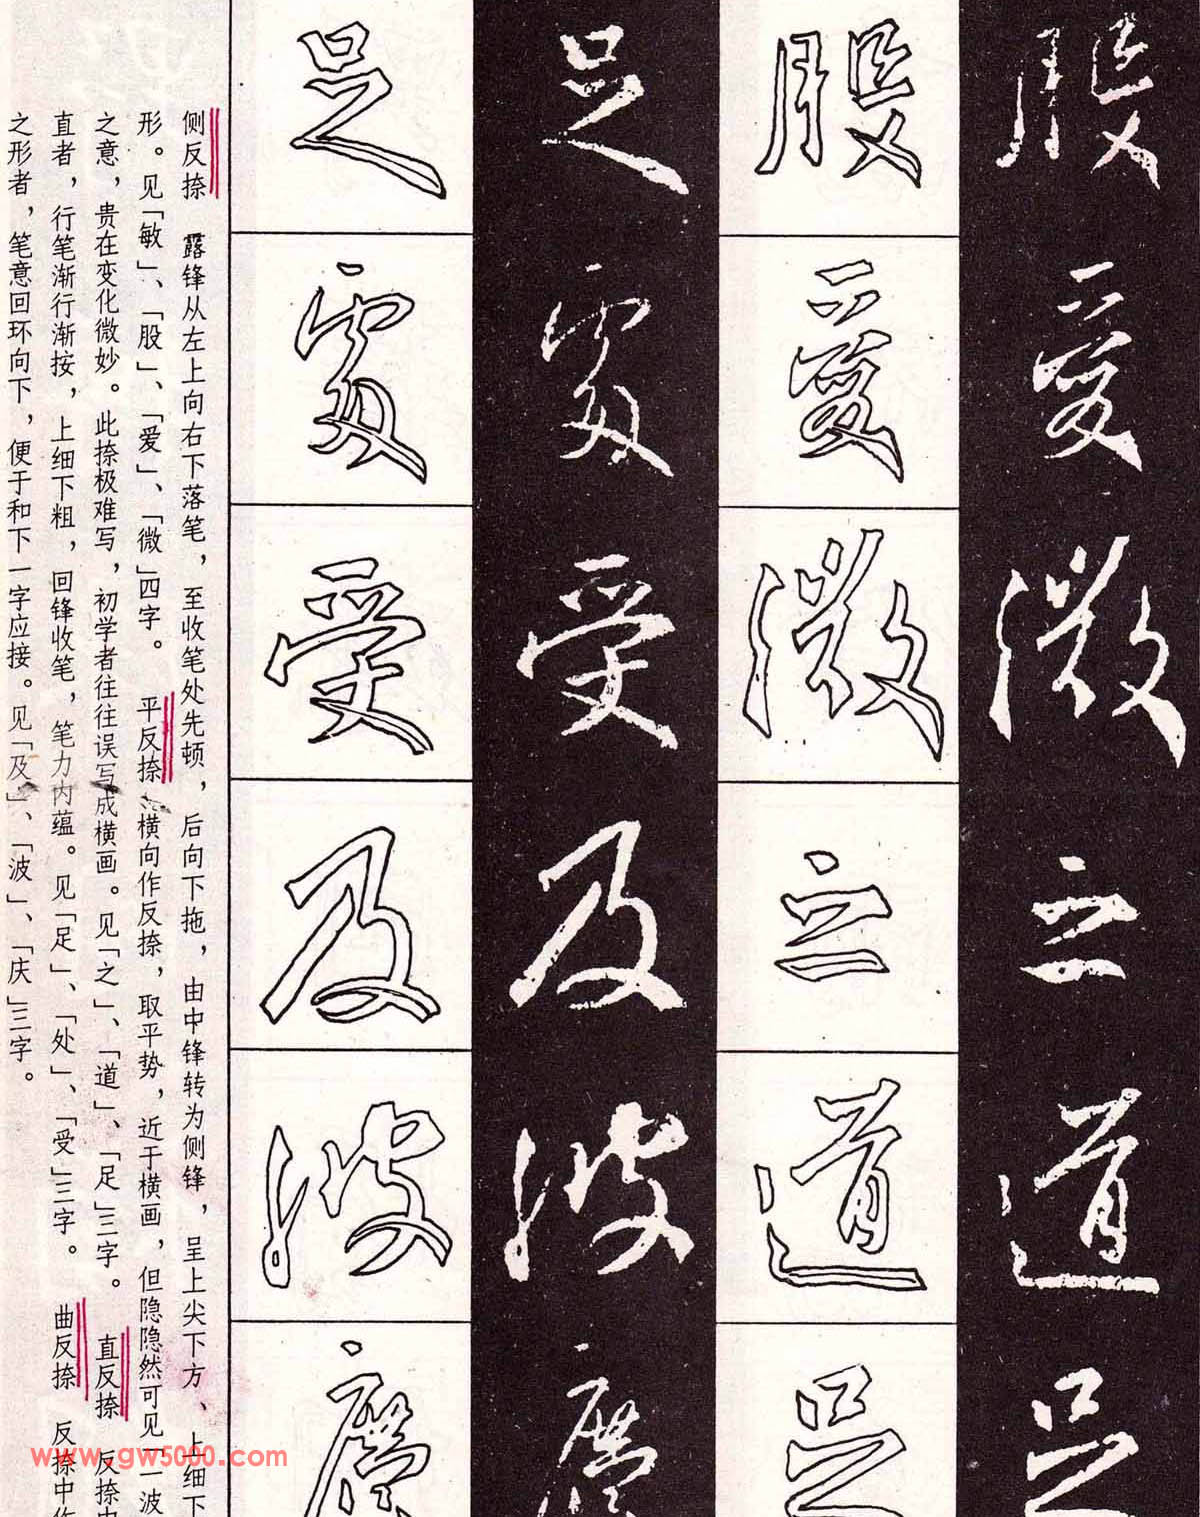 股愛微之道足
股愛微之道足
足處受及波慶
足處受及波慶
侧反捺 露锋从左上向右下落笔，至收笔处先顿，后向下拖，由中锋转为侧锋，呈上尖下方、上细下
形。见「敏」、「股」、「爱」、「微」四字。 平反捺 横向作反捺，取平势，近于横画，但隐隐然可见一波
之意，贵在变化微妙。此捺极难写，初学者往往误写成横画。见「之」、「道」、「足」三字。 直反捺 反捺中
直者，行笔渐行渐按，上细下粗，回锋收笔，笔力内蕴。见「足」、「处」、「受」三字。 曲反捺 反捺中作
之形者，笔意回环向下，便于和下一字应接。见「及」、「波」、「庆」三字。
www.gw5000.com